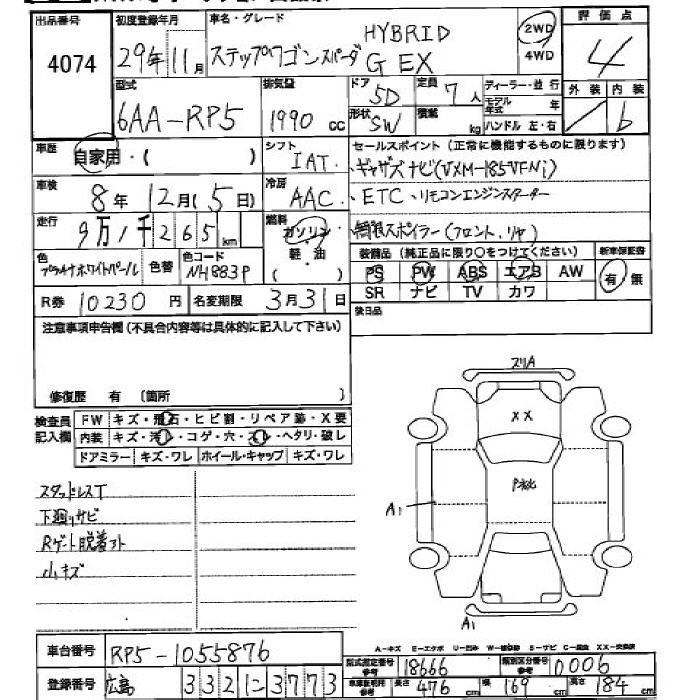 出品番号
4074
初度登録年月
29年11月
車名・グレード
ステップワゴンスパーダ
HYBRID
G EX
2WD
4WD
評価点
4
外装 内装
b
型式
6AA-RP5
排気量
1990 cc
ドア
5D
形状
SW
定員
7人
積載
kg
ディーラー・並行
モデル年式 年
ハンドル 左・右
車歴
自家用・( )
シフト
IAT
セールスポイント(正常に機能するものに限ります)
ギャザズナビ(VXM-185VFNi)
ETC、リモコンエンジンスターター
無限スポイラー(フロント、リヤ)
車検
8年12月(5日)
冷房
AAC
走行
9万1千265km
燃料
ガソリン
軽・油
( )
色
プラチナホワイトパール
色替
色コード
NH883P
装備品(純正品に限り〇をつけてください)
新車保証書
PS PW ABS エアB AW
有・無
SR ナビ TV カワ
R券 10230円
名変期限 3月31日
後日品
注意事項申告欄(不具合内容等は具体的に記入して下さい)
修復歴 有 〔箇所 〕
検査員記入欄
FW キズ・飛石・ヒビ割・リペア跡・X要
内装 キズ・汚れ・コゲ・穴・スレ・ヘタリ・破レ
ドアミラー キズ・ワレ ホイール・キャップ キズ・ワレ
スタッドレスT
下廻りサビ
Rゲート脱着アト
小キズ
スリA
XX
A1
A1
車台番号
RP5-1055876
登録番号
広島 332 に 3773
A-キズ E-エクボ U-凹み W-補修跡 S-サビ C-腐食 XX-交換済
型式指定番号 参考
18666
類別区分番号 参考
0006
車庫証明用参考
長さ 476 cm
幅 169 cm
高さ 184 cm